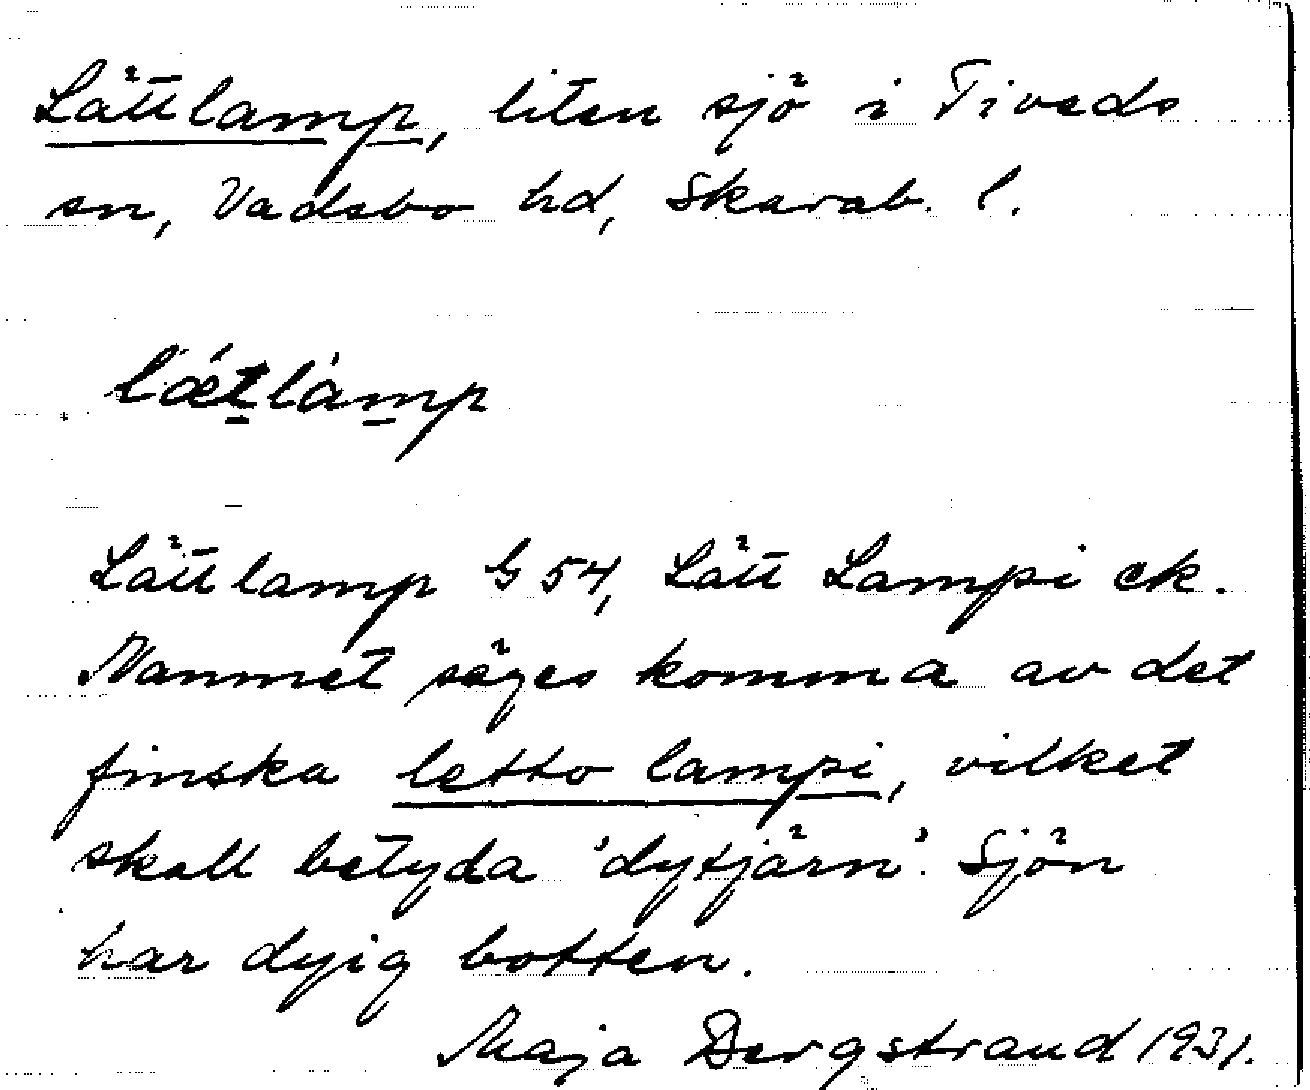 Lättlamp, liten sjö i Tiveds
sn, Vadsbo hd, Skarab. l.
lǽtlàmp
Lättlamp G 54, Lätt Lampi ek.
Namnet säges komma av det
finska letto lampi, vilket
skall betyda 'dytjärn'. Sjön
har dyig botten.
Maja Bergstrand 1931.